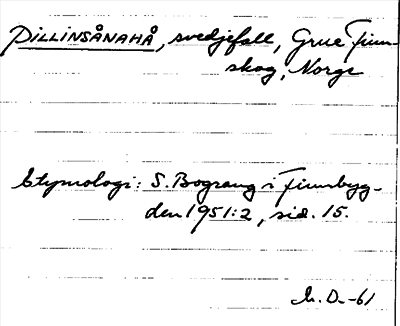 DILLINSÅNAHÅ, svedjefall, Grue Finn-
skog, Norge
Etymologi: S. Bograng i Finnbyg-
den 1951:2, sid. 15.
D.-61